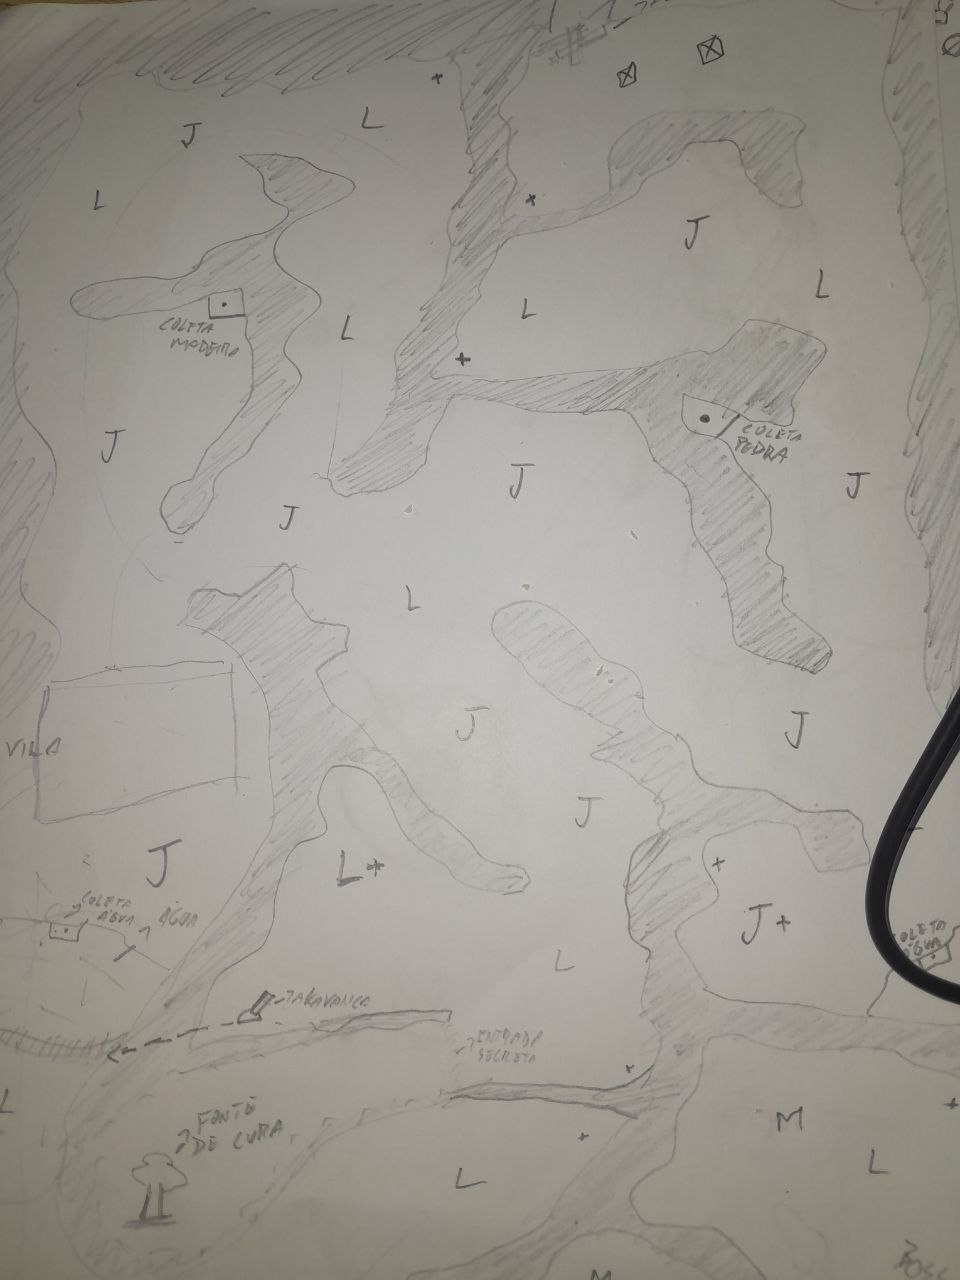 J
L
L
J
L
L
L
COLETA
MADEIRA
COLETA
PEDRA
J
J
J
J
L
J
J
VILA
J
J
L
J
COLETA
ÁGUA
ÁGUA
COLETA
ÁGUA
L
ALAVANCA
ENTRADA
SECRETA
L
FONTE
DE CURA
M
L
L
M